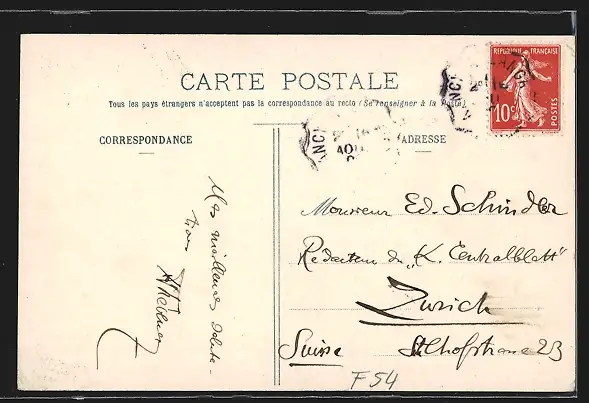 CARTE POSTALE
Tous les pays étrangers n'acceptent pas la correspondance au recto (Se renseigner à la Poste)
CORRESPONDANCE
ADRESSE
REPUBLIQUE FRANÇAISE
10c
POSTES
Mes meilleures saluta-
tions
Monsieur Ed. Schindler
Redacteur du „K. Centralblatt"
Zurich
Suisse
23
F54